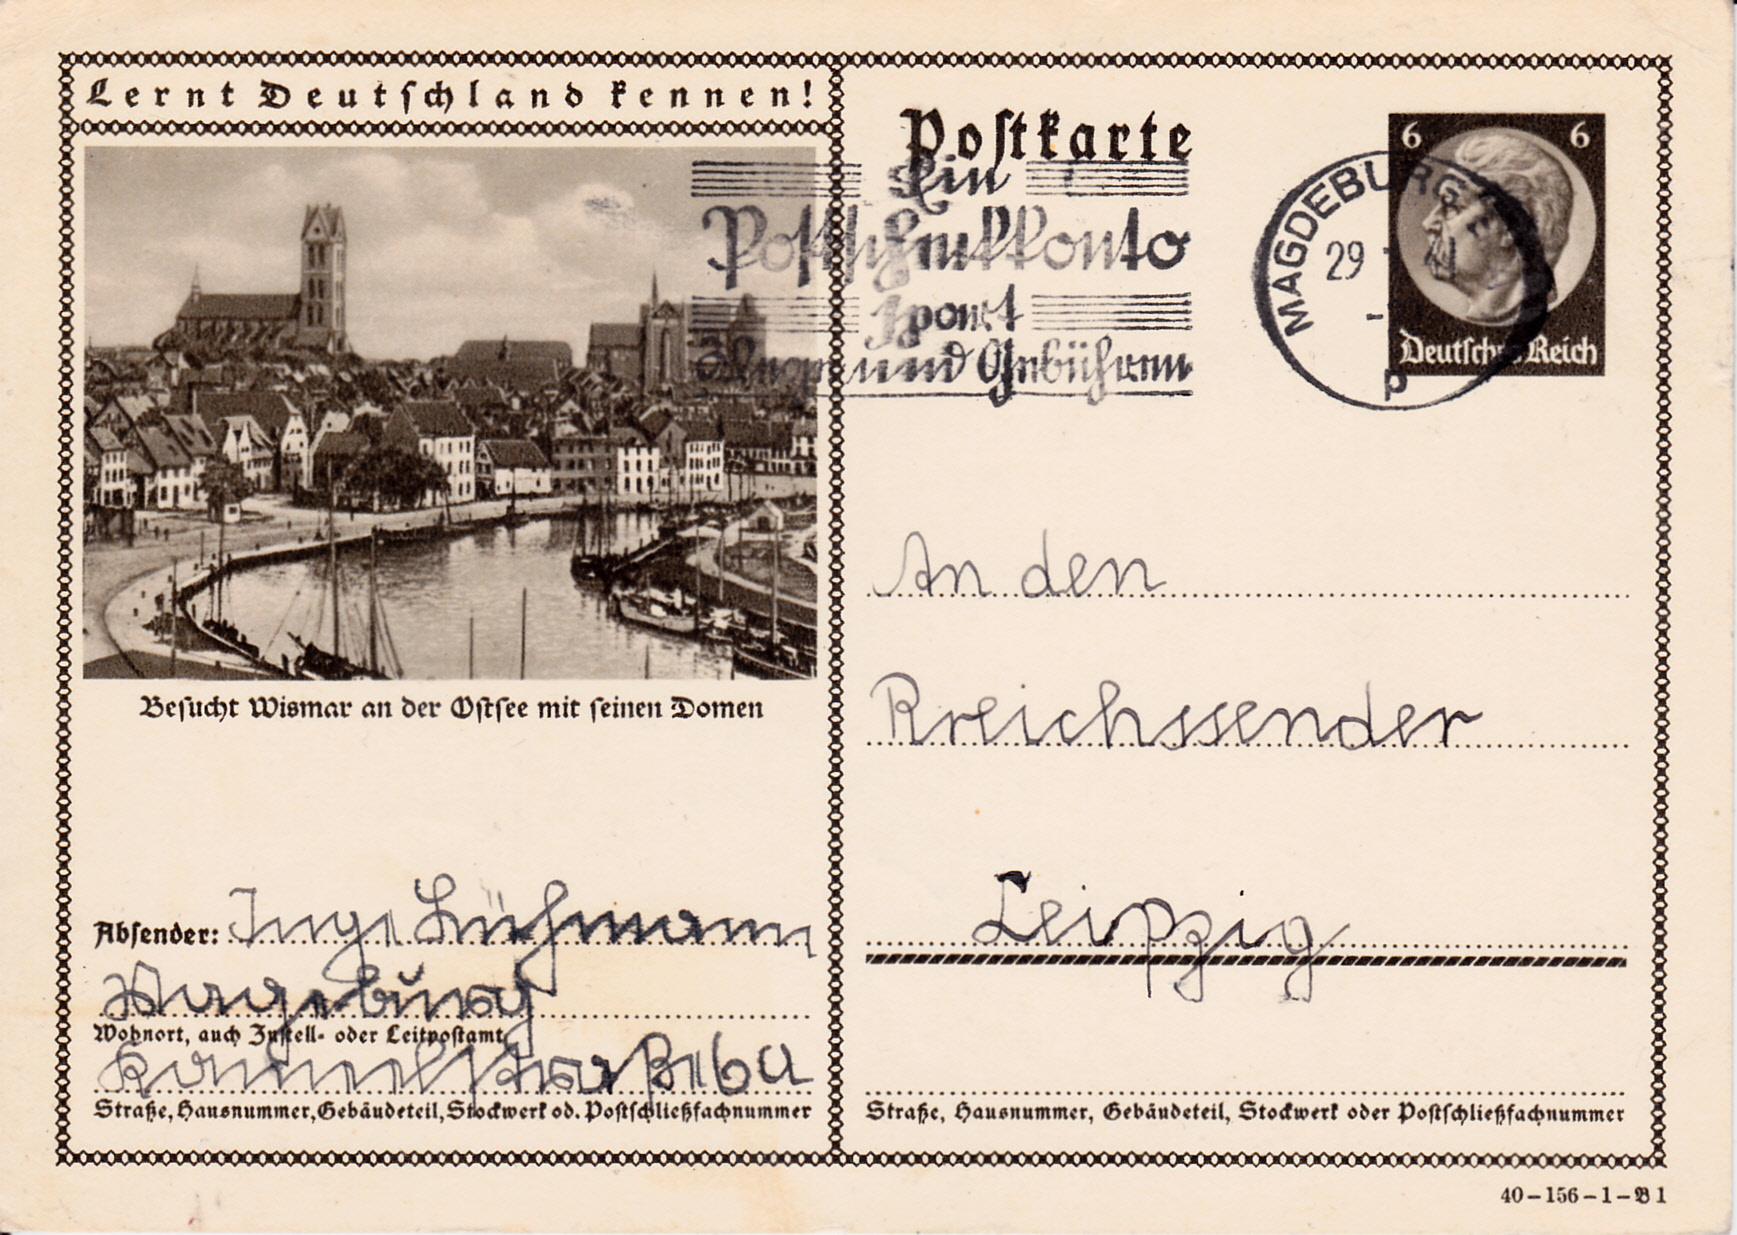 Lernt Deutschland kennen!
Besucht Wismar an der Ostsee mit seinen Domen
Absender: Inge Lühmann
Mageburg
Wohnort, auch Zustell- oder Leitpostamt
straße 6a
Straße, Hausnummer, Gebäudeteil, Stockwerk od. Postschließfachnummer
Postkarte
Ein
Postscheckkonto
spart
Wege und Gebühren
MAGDEBURG
29
p
6 6
Deutsches Reich
An den
Rreichssender
Leipzig
Straße, Hausnummer, Gebäudeteil, Stockwerk oder Postschließfachnummer
40-156-1-B 1